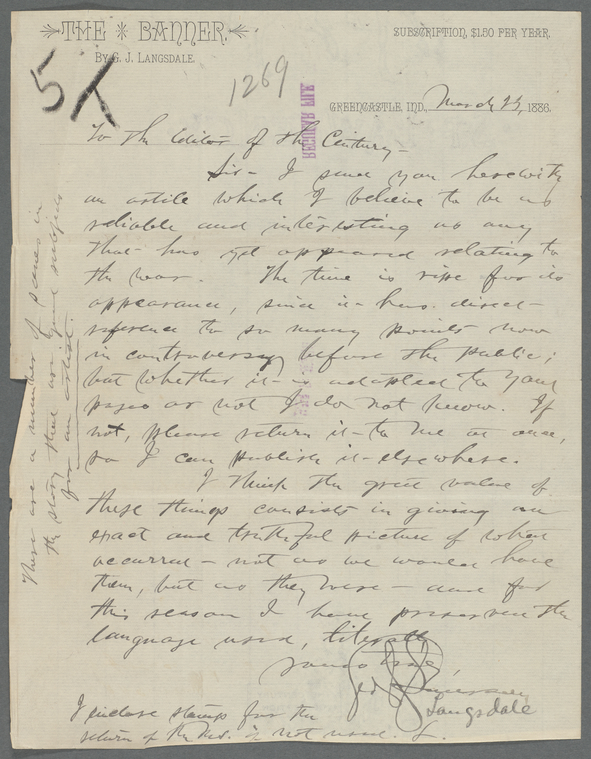 THE BANNER.
By G. J. Langsdale.
SUBSCRIPTION, $1.50 PER YEAR.
5
1269
REGULAR FILE
GREENCASTLE, IND., March 23, 1886.
To the Editor of the Century—
Sir— I send you herewith
an article which I believe to be as
reliable and interesting as any
that has yet appeared relating to
the war. The time is ripe for its
appearance, since it has direct
reference to so many points now
in controversy before the public;
but whether it is adapted to your
pages or not I do not know. If
not, please return it to me at once,
so I can publish it elsewhere.
I think the great value of
these things consists in giving an
exact and truthful picture of what
occurred — not as we would have
them, but as they were — and for
this reason I have preserved the
language used, literally
Yours truly,
Langsdale
I enclose stamps for the
return of the Ms. if not used. L.
There are a number of scenes in
the story that are good subjects
for an artist.